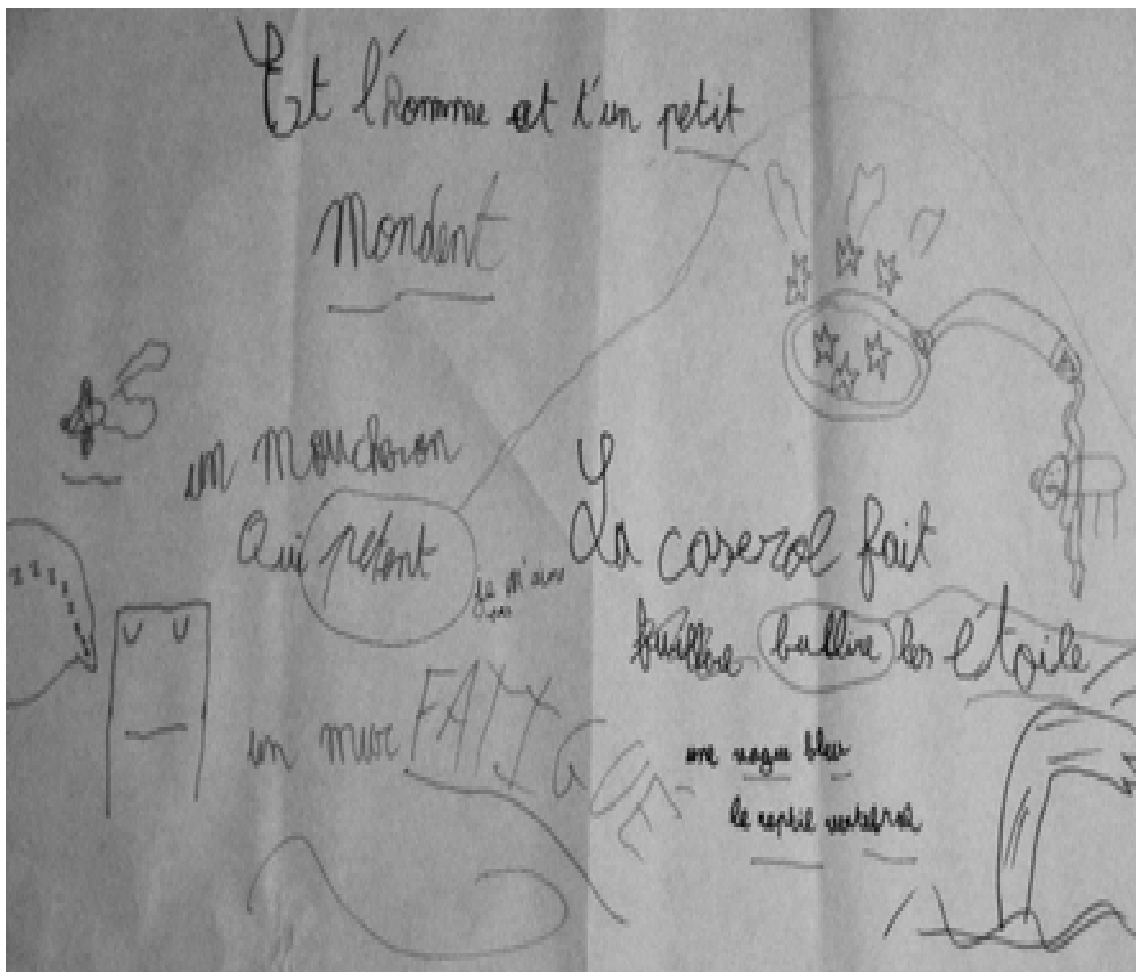 Et l'homme et t'un petit
Mondent
un moucheron
Qui petent
je m'
La caserol fait
bullire les étoile
un mur FATIGUÉ
une vague bleu
le reptil
zzzz